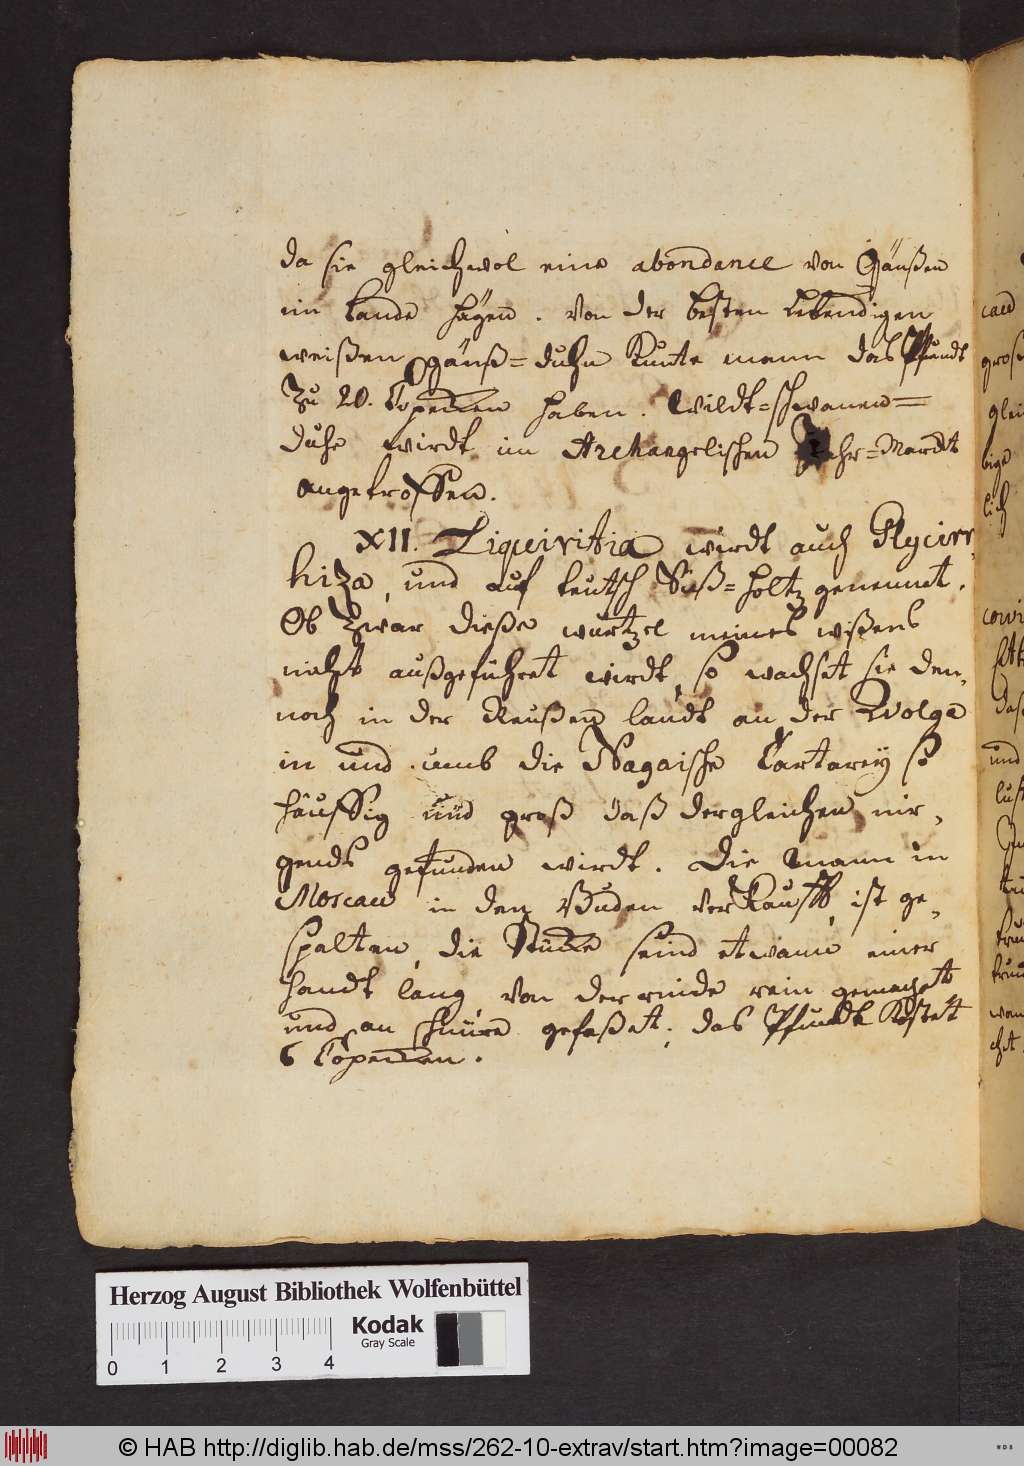 da sie gleichwol eine abondance von Gänßen
im Lande hägen. Von der besten lebendigen
weißen gänß=duhn kunte mann das Pfundt
zu 20. Copecken haben. Wildt=schwanen=
duhe wirdt im Archangelischen Jahr=Marckt
angetroffen.
XII. Liquiritia wirdt auch Glycirr,
hiza, und auf teutsch Süß=holtz genennet.
Ob zwar dieße wurtzel meines wißens
nicht außgeführet wirdt, so wachset sie den,
noch in der Reußen landt an der Wolga
in und umb die Nagaische Tartarey so
häuffig und groß daß dergleichen nir,
gends gefunden wirdt. Die Mann in
Moscau in den Buden verkaufft, ist ge,
spalten, die Stücke seind etwann einer
handt lang, von der rinde rein gemacht
und an schnüre gefaßet; das Pfundt kostet
6 Copecken.
cau
groß
glei
bige
lich
daß
und
Herzog August Bibliothek Wolfenbüttel
Kodak
Gray Scale
0 1 2 3 4
© HAB http://diglib.hab.de/mss/262-10-extrav/start.htm?image=00082